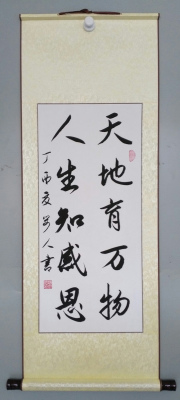 天地育万物
人生知感恩
丁酉夏安人書